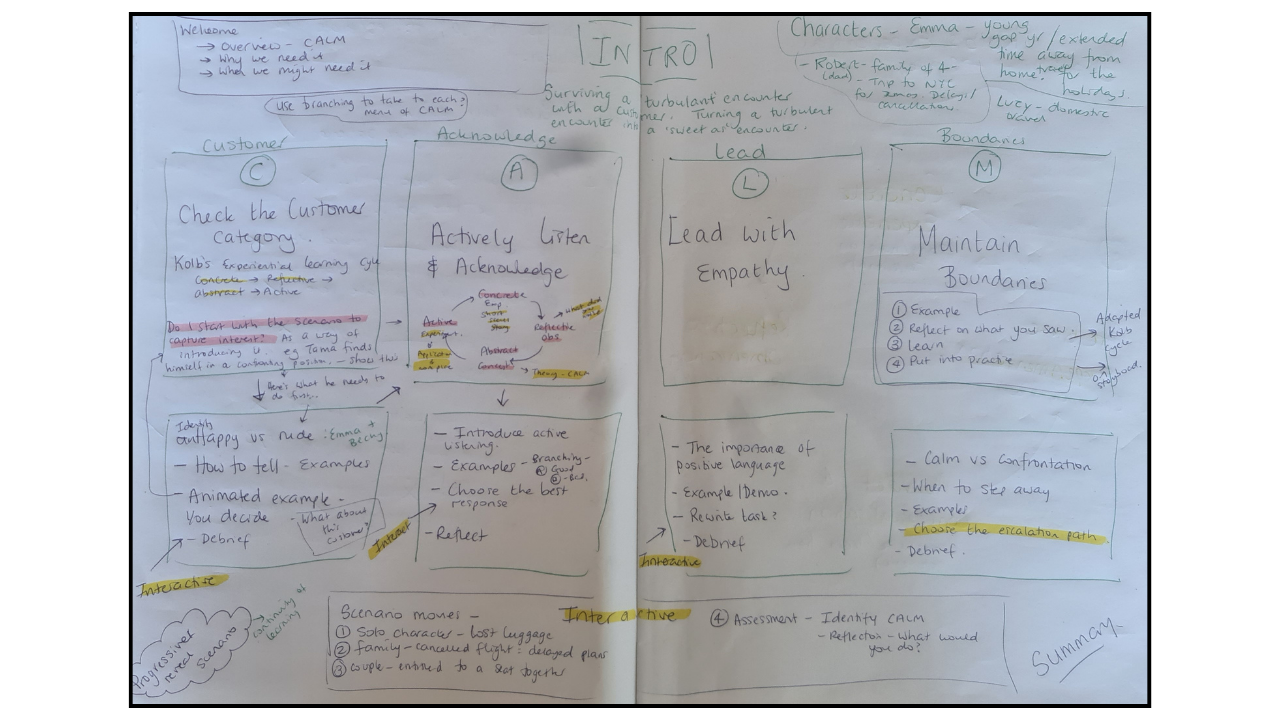 Welcome
→ Overview - CALM
→ Why we need it
→ When we might need it
Use branching to take to each
menu of CALM
INTRO
Surviving a 'turbulant' encounter
with a customer. Turning a turbulent
encounter into a 'sweet as' encounter.
Characters - Emma - young
gap yr / extended
time away from
home
travel for the
holidays.
- Robert - family of 4 -
(dad) - Trip to NYC
for xmas. Delays/
cancellation.
Lucy - domestic
travel
Customer
C
Check the Customer
Category.
Kolb's Experiential learning cycle
Concrete → Reflective →
abstract → Active
Do I start with the scenario to
capture interest? As a way of
introducing it. eg Tama finds
himself in a confronting position - show this
Here's what he needs to
do first...
Acknowledge
A
Actively Listen
& Acknowledge
Concrete
Emp
Active
Experiment.
Reflective
obs
Abstract
Theory - CALM
Lead
L
Lead with
Empathy.
Boundaries
M
Maintain
Boundaries
① Example
② Reflect on what you saw.
③ Learn
④ Put into practice
Adapted
Kolb
Cycle
on
storyboard.
Identify
unHappy vs rude : Emma +
Becky
- How to tell - Examples
- Animated example -
You decide
- What about
this
customer?
- Debrief
Interactive
- Introduce active
listening.
- Examples - Branching -
Good
Bad.
- Choose the best
response
- Reflect
Interact
- The importance of
positive language
- Example / Demo.
- Rewrite task?
- Debrief
Interactive
- Calm vs Confrontation
- When to step away
- Examples
- Choose the escalation path
- Debrief.
Progressive
real scenario
→ continuity of
learning
Scenario moves -
① Solo character - lost luggage
② family - cancelled flight : delayed plans
③ couple - entitled to a seat together
Interactive
④ Assessment - Identify CALM
- Reflection - What would
you do?
Summary -